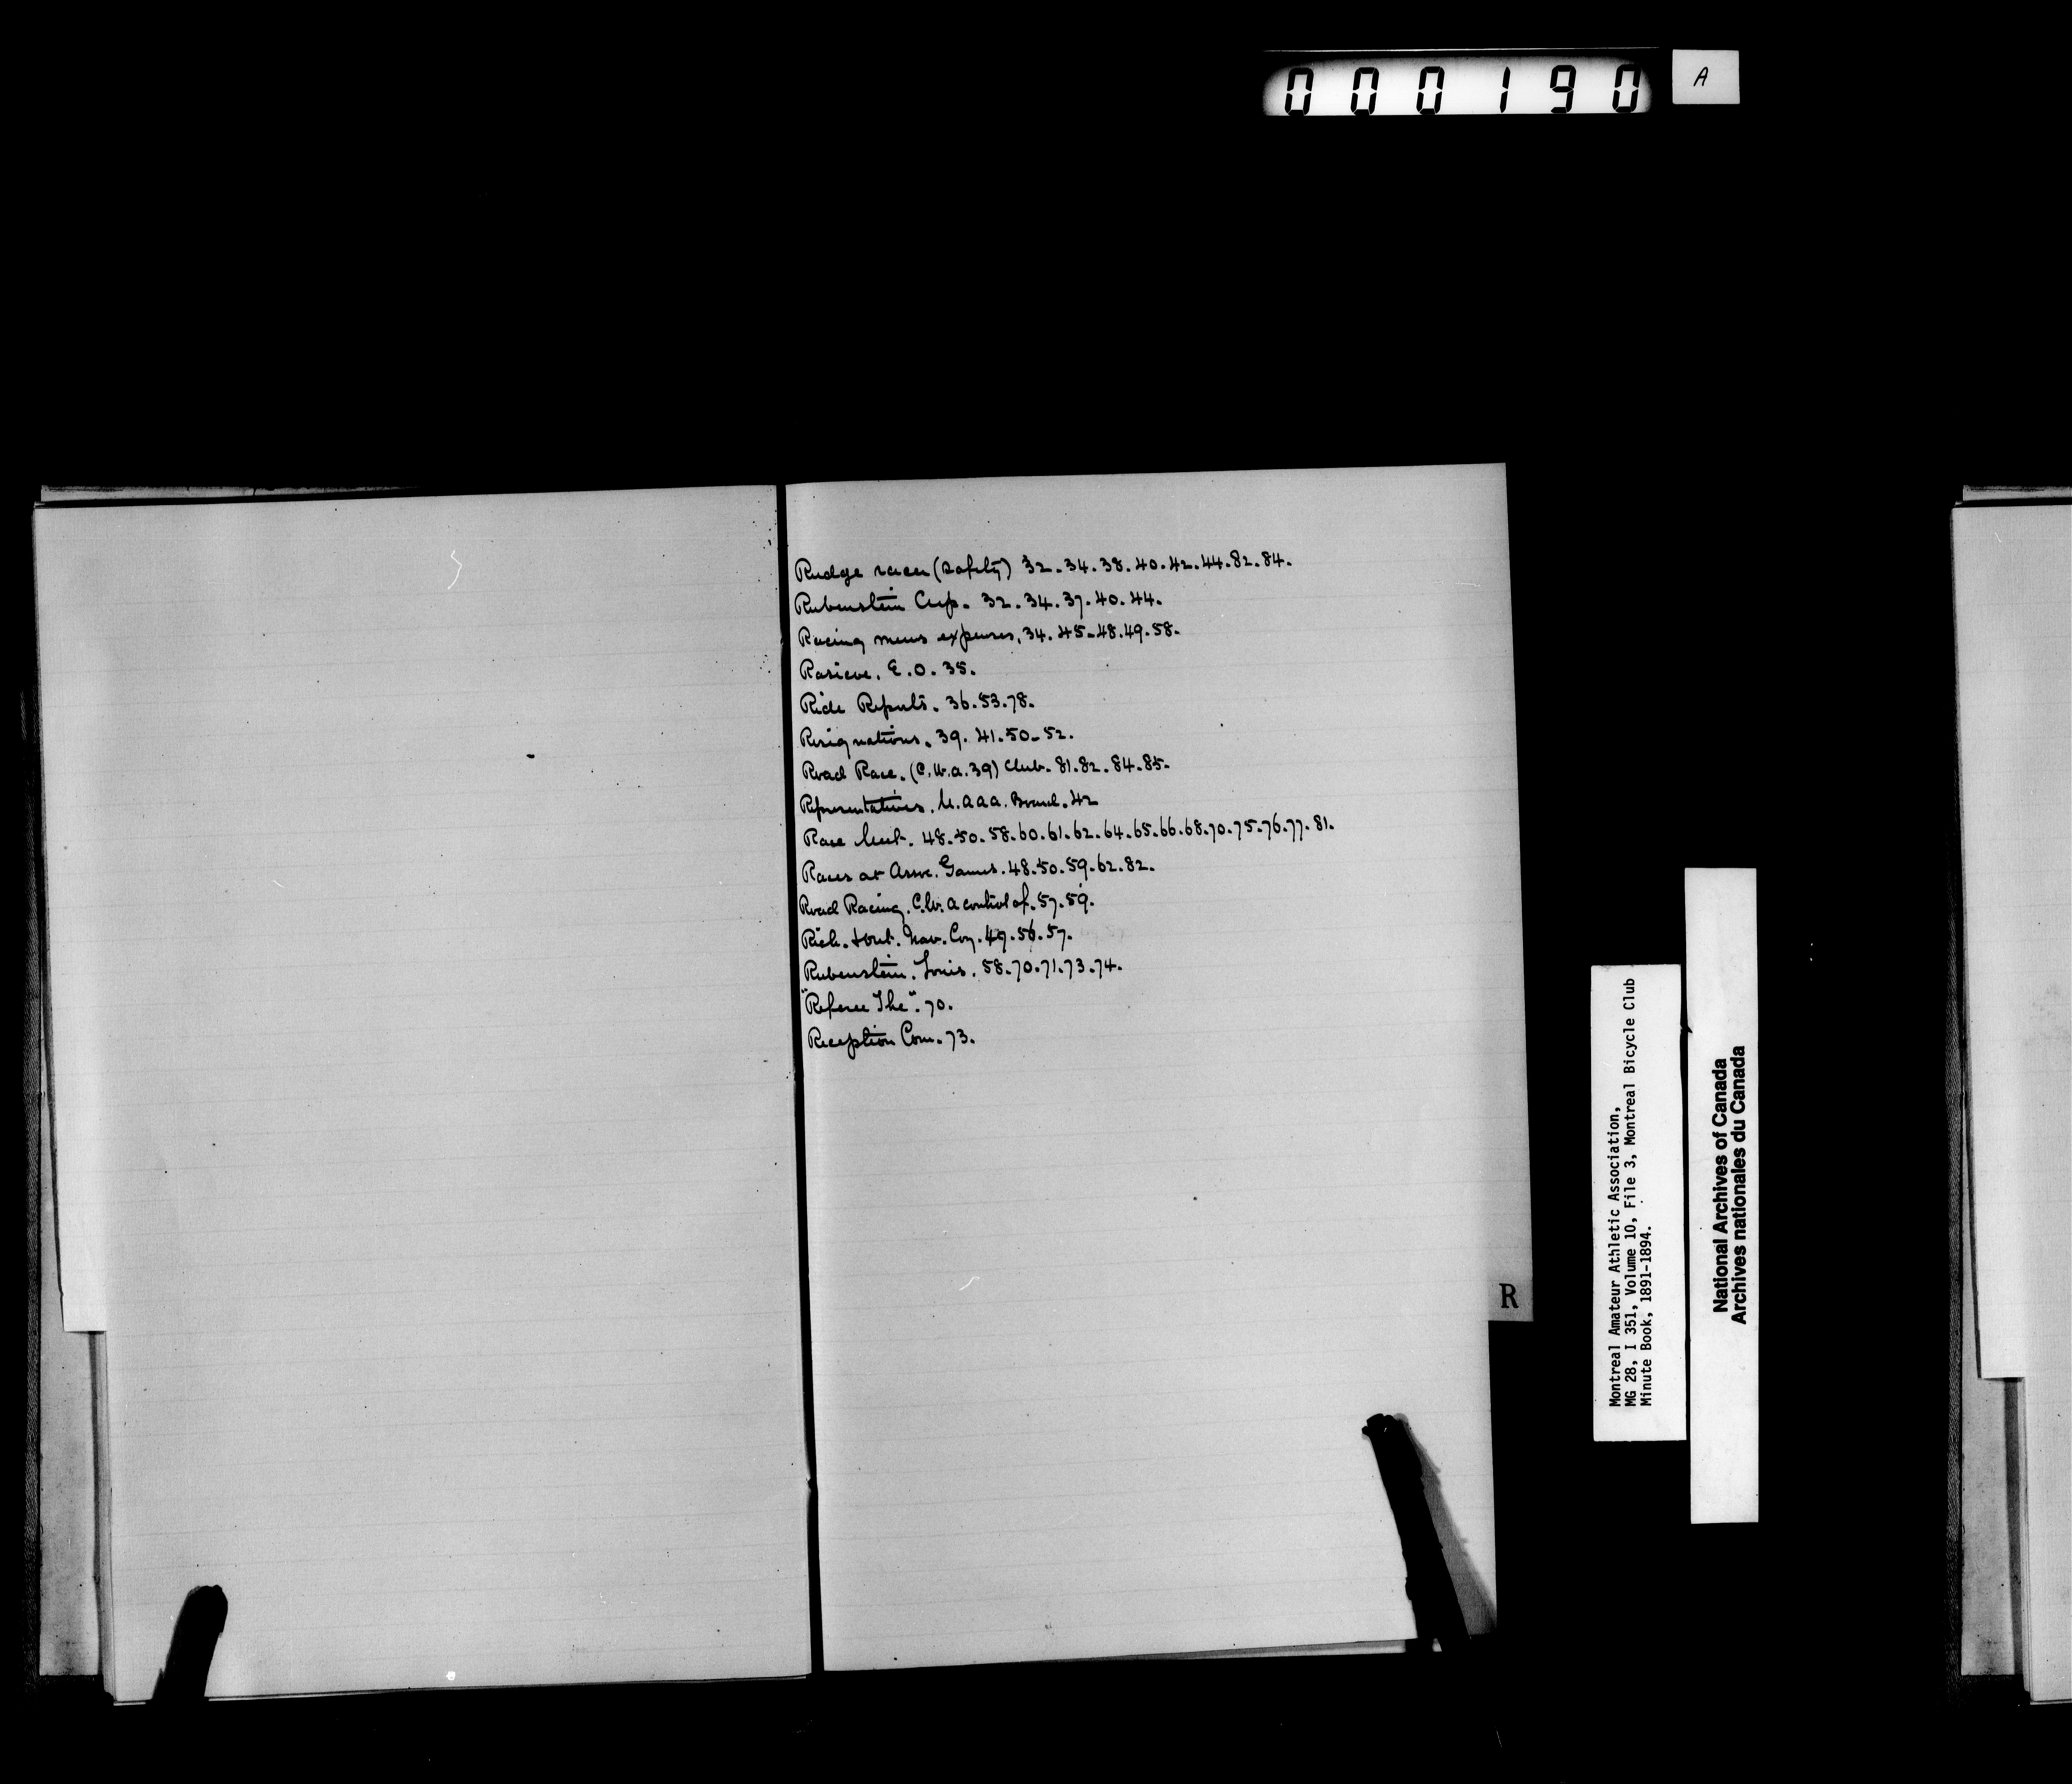 000190
A
Rudge racer (Safety) 32. 34. 38. 40. 42. 44. 82. 84.
Rubenstein Cup. 32. 34. 37. 40. 44.
Racing mens expenses, 34. 45. 48. 49. 58.
E. O. 35.
Ride Reports. 36. 53. 78.
Resignations. 39. 41. 50. 52.
Road Race. (C.W.A. 39) Club. 81. 82. 84. 85.
Representatives. M.A.A.A. Board. 42
Race Meet. 48. 50. 58. 60. 61. 62. 64. 65. 66. 68. 70. 75. 76. 77. 81.
Races at Assoc. Games. 48. 50. 59. 62. 82.
Road Racing. C.W.A control of. 57. 59.
Rich. & Ont. Nav. Coy. 49. 56. 57.
Rubenstein. Louis. 58. 70. 71. 73. 74.
"Referee The". 70.
Reception Com. 73.
R
Montreal Amateur Athletic Association,
MG 28, I 351, Volume 10, File 3, Montreal Bicycle Club
Minute Book, 1891-1894.
National Archives of Canada
Archives nationales du Canada